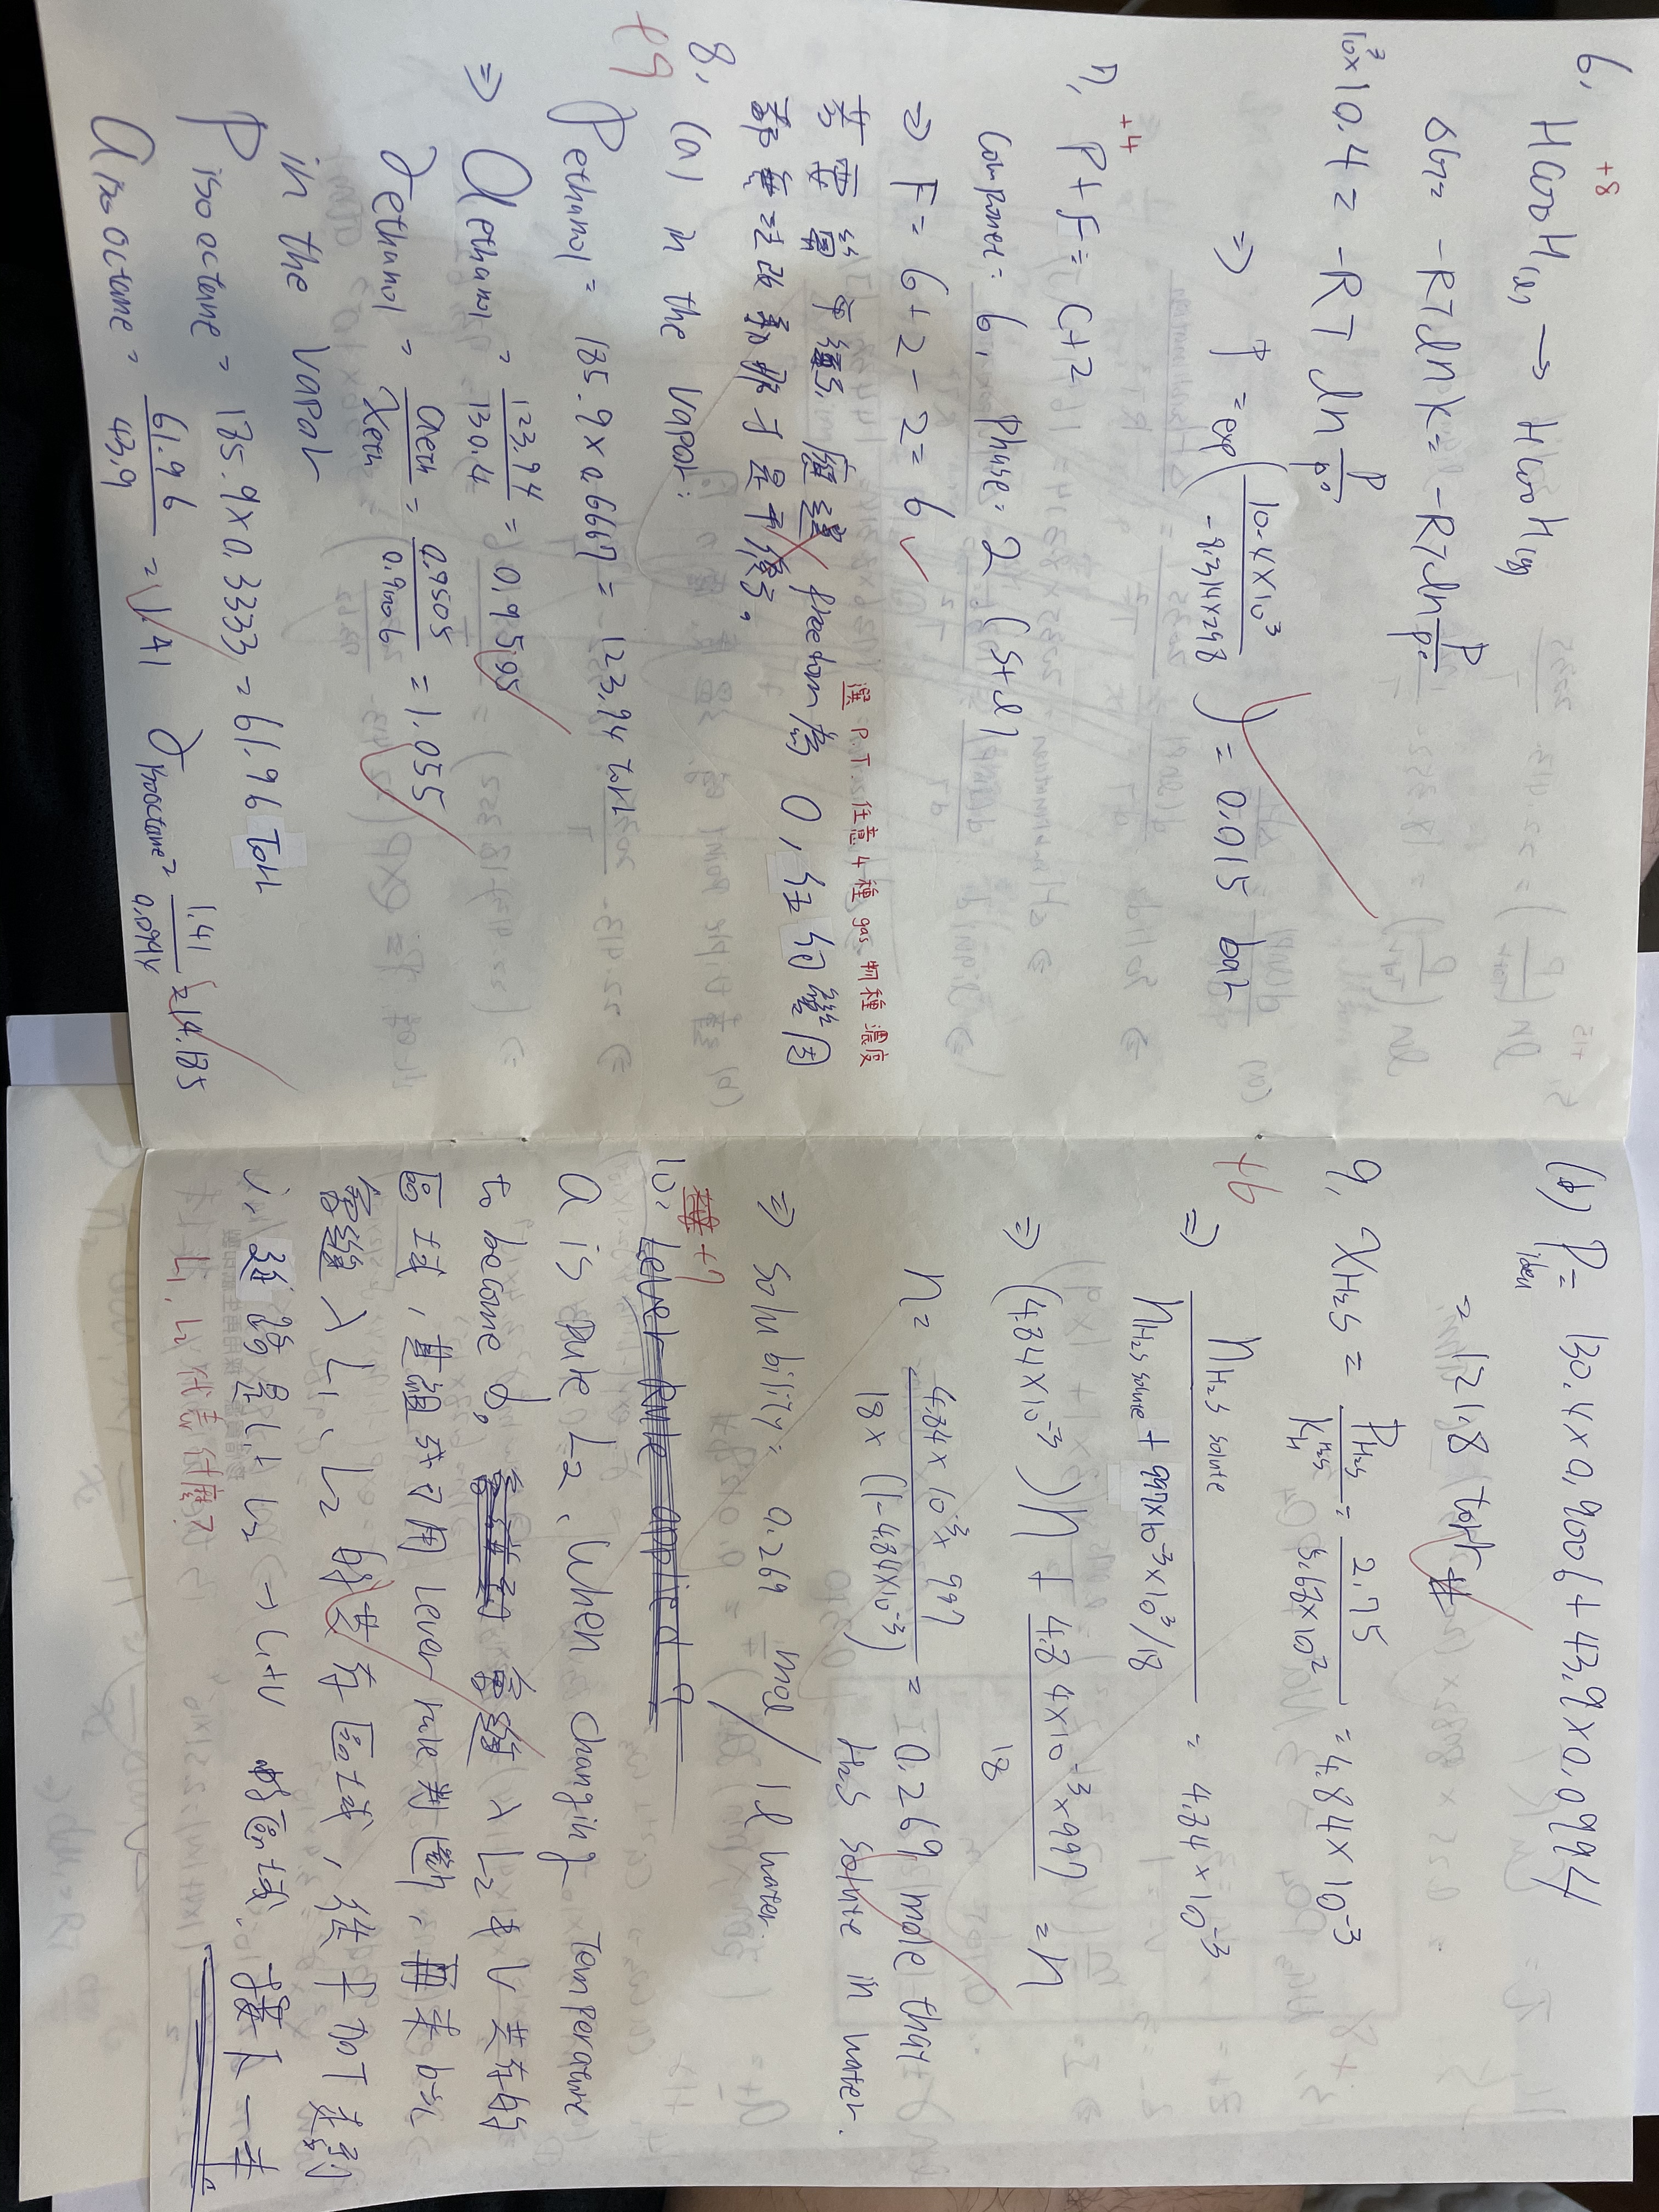 6. HCOOH(l) → HCOOH(g)
+8
ΔG = -RT ln K = -RT ln P/P°
10³×10.4 = -RT ln P/P°
⇒ P = exp(10.4×10³/-8.314×298) = 0.015 bar
7. P+F = C+2
+4
Component: 6, Phase: 2 (s+g)
⇒ F = 6+2-2 = 6
選: P.T. 任意4種 gas 物種濃度
freedom 為 0, 任何變因
都無法改動
8. (a) in the vapor:
+9
P ethanol = 185.9×0.6667 = 123.94 torr
⇒ a ethanol = 123.94/130.4 = 0.9505
γ ethanol = a eth/x eth = 0.9505/0.9006 = 1.055
in the vapor
P iso octane = 185.9×0.3333 = 61.96 Torr
a iso octane = 61.96/43.9 = 1.41 γ isooctane = 1.41/0.0994 = 14.185
(b) P ideal = 130.4×0.9006+43.9×0.0994
= 121.8 torr #
9. χH2S = PH2S/KH H2S = 2.75/5.68×10² = 4.84×10⁻³
+6
⇒ nH2S solute/nH2S solute + 997×10⁻³×10³/18 = 4.84×10⁻³
⇒ (4.84×10⁻³)n + 4.84×10⁻³×997/18 = n
n = 4.84×10⁻³×997/18×(1-4.84×10⁻³) = 0.269 mole that
has solute in water.
⇒ solubility = 0.269 mol/1L water.
10. Lever rule applied
+7
a is pure L2, when changing temperature
to become b, 會進入 L2 與 V 共存的
區域, 其組成可用 lever rule 判斷, 再來 b→c
會進入 L1、L2 的共存區域, 從 P 加 T 達到